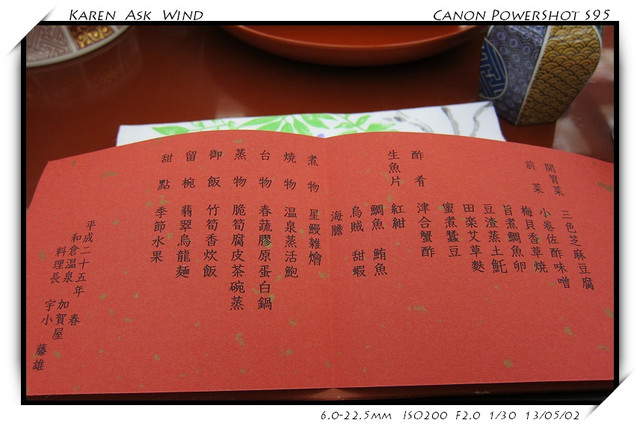 KAREN ASK WIND
CANON POWERSHOT S95
開胃菜 三色芝麻豆腐
前菜 小卷佐酢味噌
梅貝香草燒
旨煮鯛魚卵
豆渣蒸土魠
田楽艾草麩
蜜煮蠶豆
酢肴 津合蟹酢
生魚片 紅紺
鯛魚 鮪魚
烏賊 甜蝦
海膽
煮物 星鰻雑燴
燒物 温泉蒸活鮑
台物 春蔬膠原蛋白鍋
蒸物 脆筍腐皮茶碗蒸
御飯 竹筍香炊飯
留椀 翡翠烏龍麵
甜點 季節水果
平成二十五年 春
和倉温泉 加賀屋
料理長 宇小 藤雄
6.0-22.5MM ISO200 F2.0 1/30 13/05/02